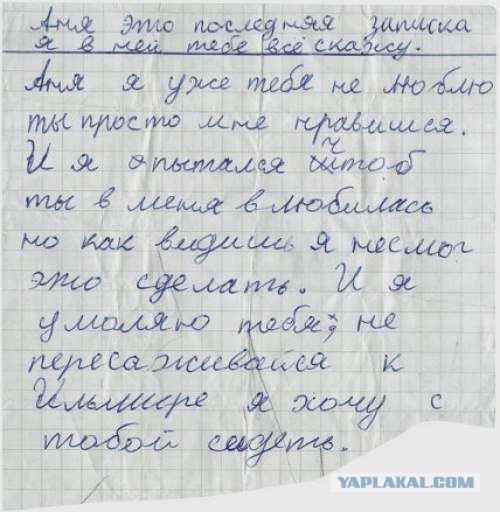 Аня это последняя записка
я в ней тебе всё скажу.
Аня я уже тебя не люблю
ты просто мне нравишся.
И я опытался чтоб
ты в меня влюбилась
но как видишь я несмог
это сделать. И я
умоляю тебя, не
пересаживайся к
Ильмире я хочу с
тобой сидеть.
YAPLAKAL.COM